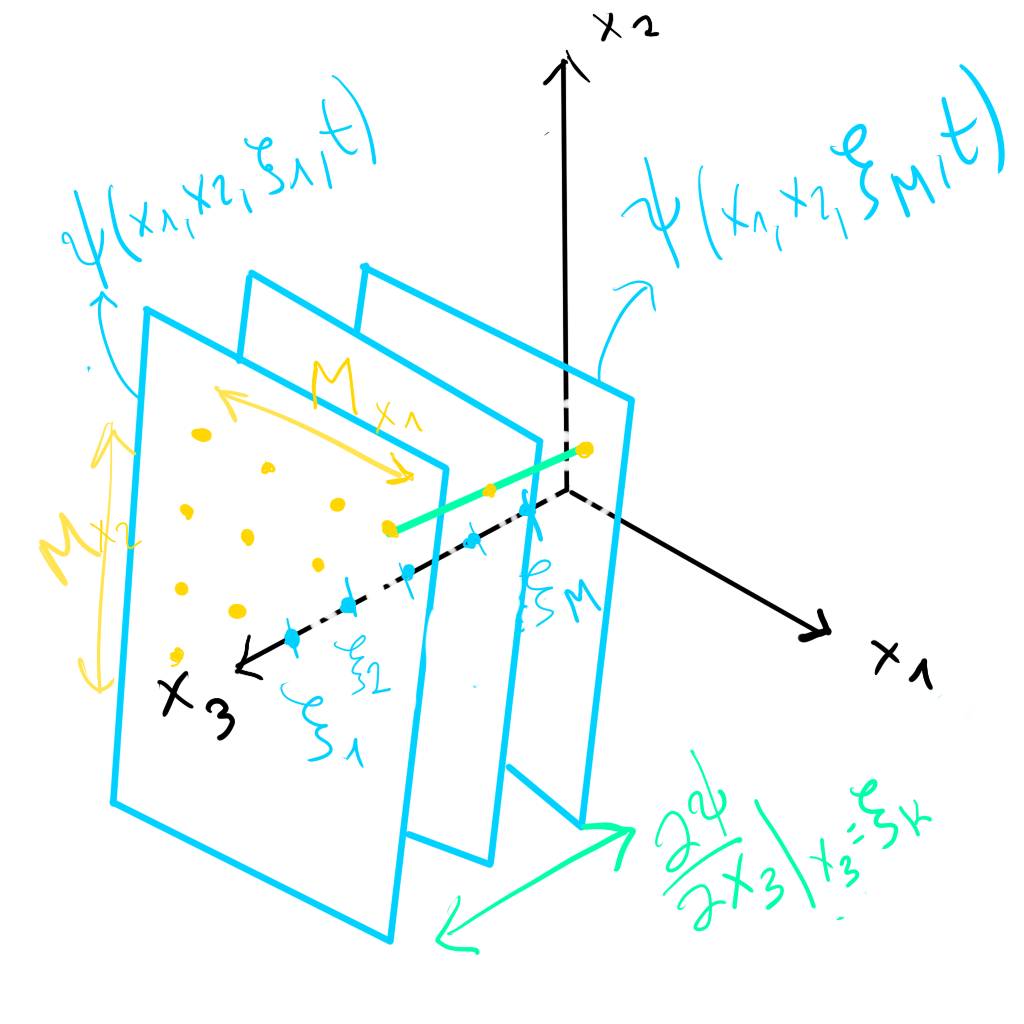 x2
ψ(x1,x2,ξ1,t)
ψ(x1,x2,ξM,t)
Mx1
Mx2
ξM
x1
ξ2
x3
ξ1
∂ψ/∂x3|x3=ξk